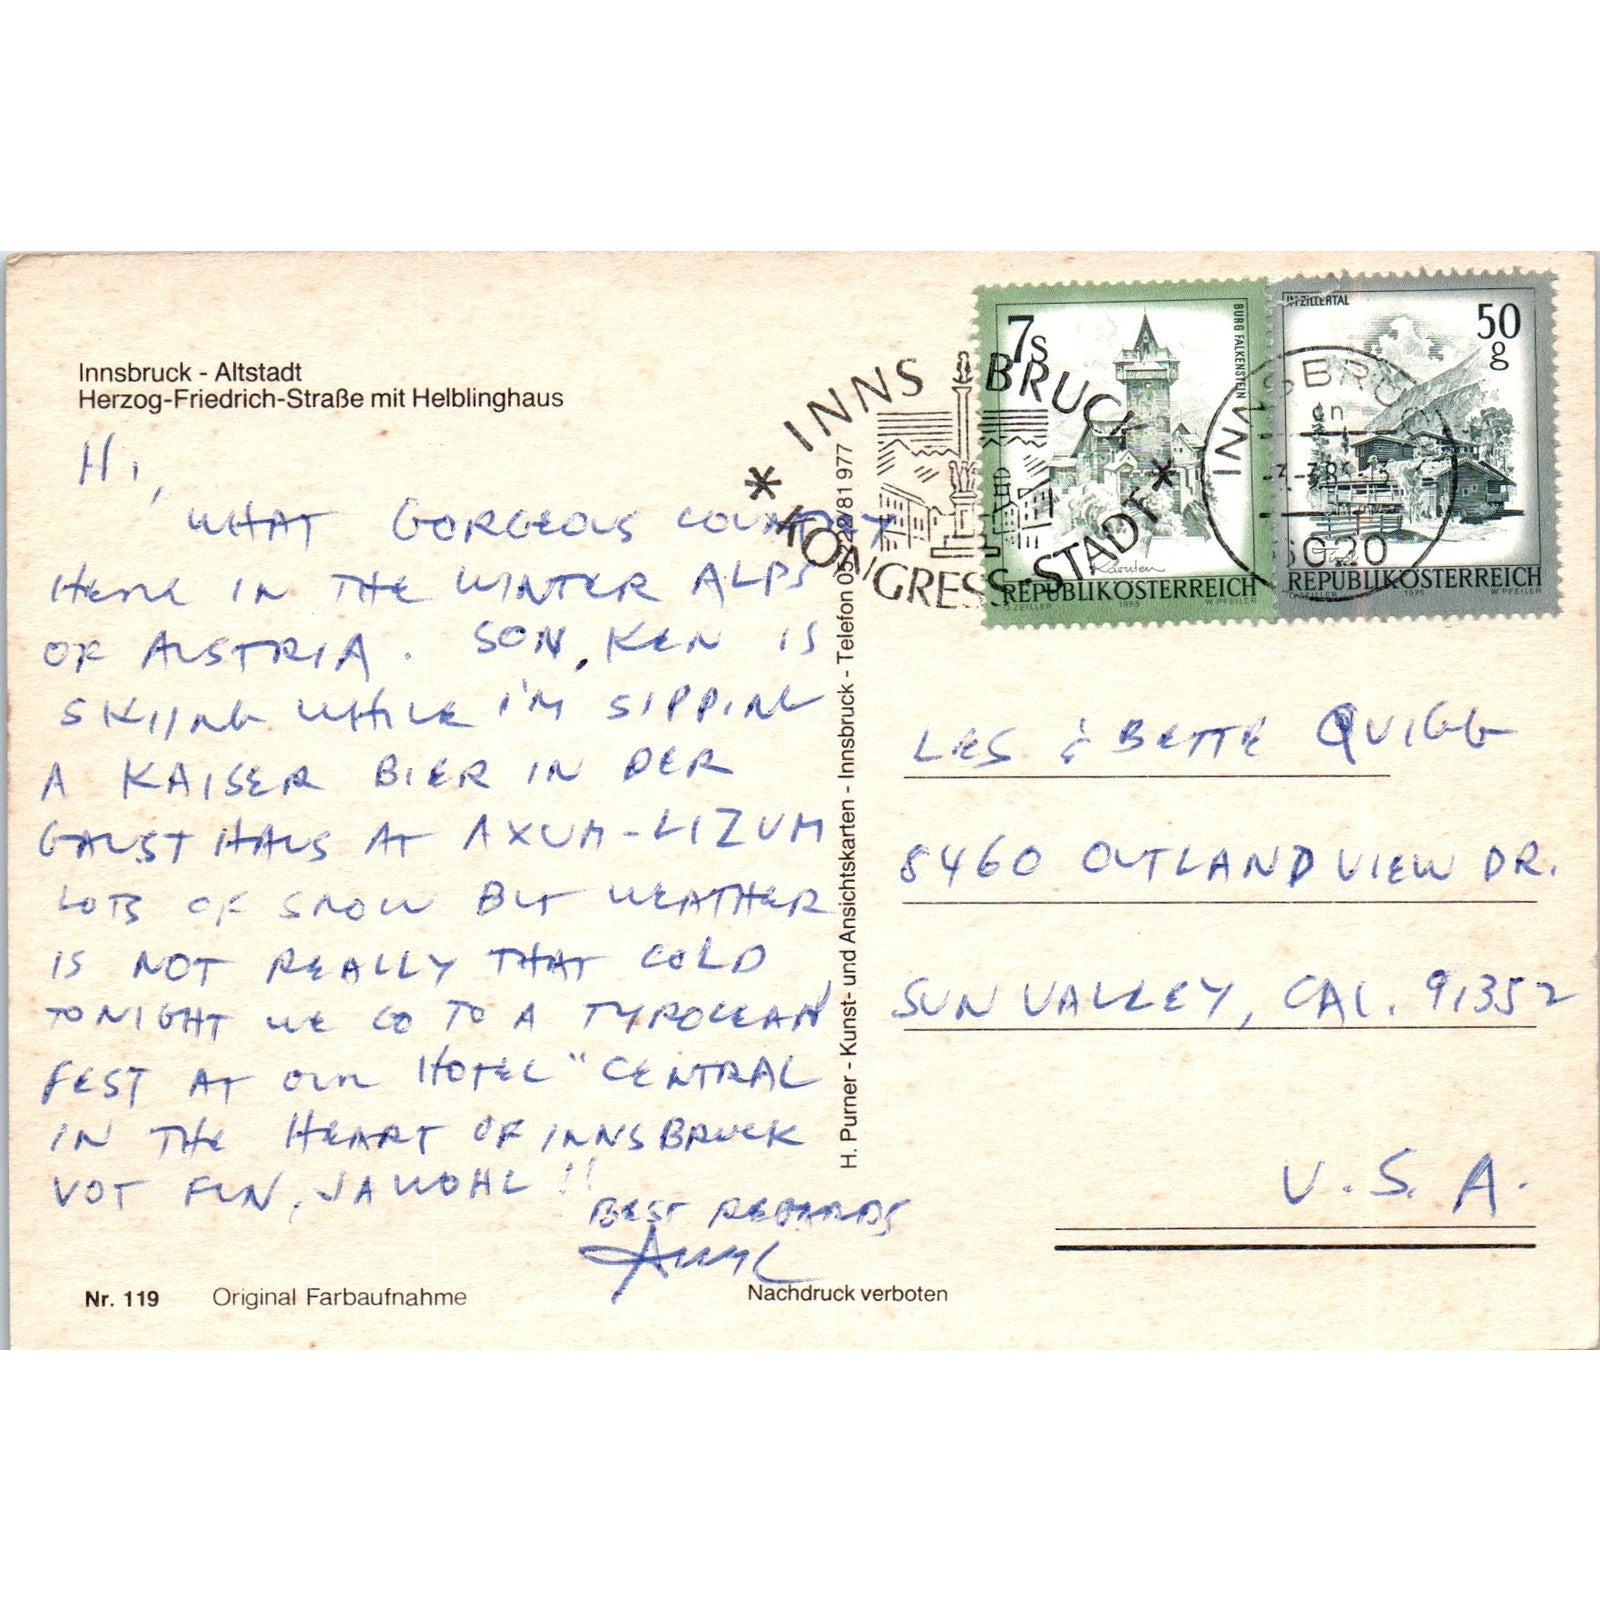 Innsbruck - Altstadt
Herzog-Friedrich-Straße mit Helblinghaus
HI,
WHAT GORGEOUS COUNTRY
HERE IN THE WINTER ALPS
OF AUSTRIA. SON, KEN IS
SKIING WHILE I'M SIPPING
A KAISER BIER IN DER
GAUST HAUS AT AXUM-LIZUM
LOTS OF SNOW BUT WEATHER
IS NOT REALLY THAT COLD
TONIGHT WE GO TO A TYROLEAN
FEST AT OUR HOTEL "CENTRAL
IN THE HEART OF INNSBRUCK
VOT FUN, JAWOHL!!
BEST REGARDS
Nr. 119 Original Farbaufnahme
Nachdruck verboten
H. Purner - Kunst- und Ansichtskarten - Innsbruck - Telefon 05222/81 977
* INNSBRUCK *
KONGRESS-STADT
7s
BURG FALKENSTEIN
Kärnten
REPUBLIK ÖSTERREICH
ZEILLER 1973 W. PFEILER
ZILLERTAL
50 g
REPUBLIK ÖSTERREICH
1975 W. PFEILER
INNSBRUCK
LES & BETTE QUIGG
8460 OUTLAND VIEW DR.
SUN VALLEY, CAL. 91352
U.S.A.